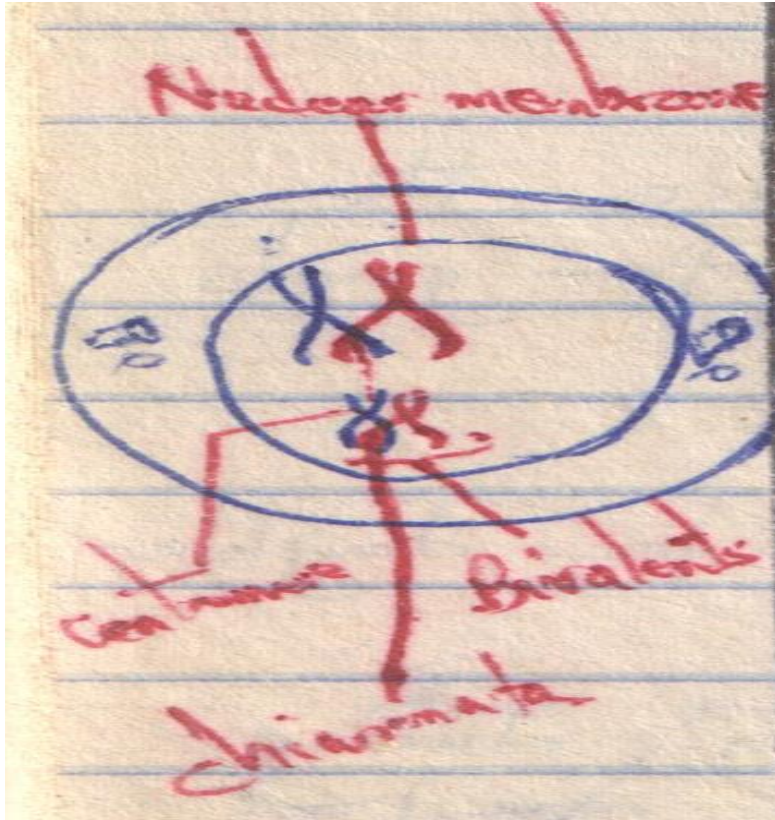 Nuclear membrane
Centromere
Bivalents
Chiasmata